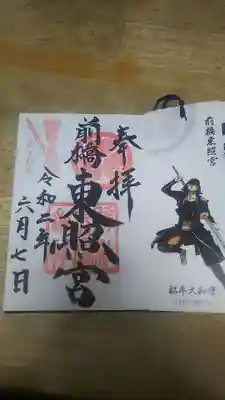 奉拝
前橋
東照宮
令和二年
六月七日
前橋東照宮
松平大和守